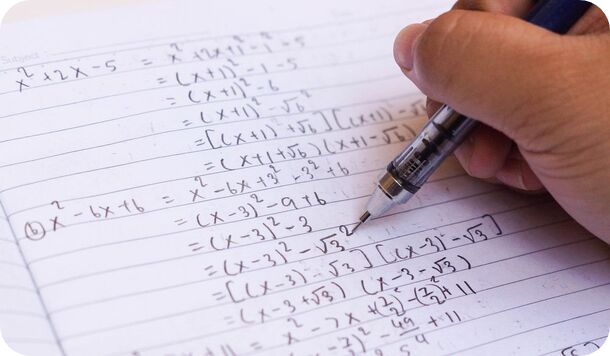 Subject
x²+2x-5 = x²+2x+1²-1²-5
= (x+1)²-1-5
= (x+1)²-6
= (x+1)²-√6²
= [(x+1)+√6][(x+1)-√6
= (x+1+√6)(x+1-√6)
(b) x²-6x+6 = x²-6x+3²-3²+6
= (x-3)²-9+6
= (x-3)²-3
= (x-3)²-√3²
= [(x-3)+√3][(x-3)-√3]
= (x-3+√3)(x-3-√3)
= x²-7x+(7/2)²-(7/2)²+11
)²-49/4+11